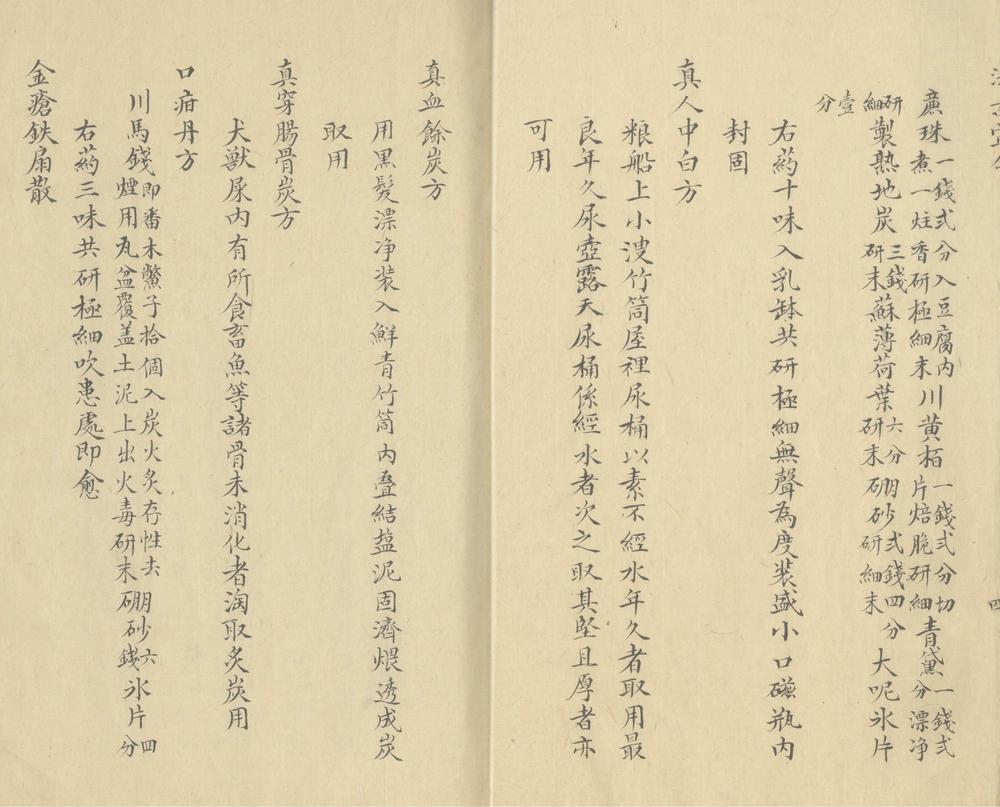 廉珠一錢弍分入豆腐内煮一炷香研極細末川黄栢一錢弍分切片焙脆研細青黛一錢弍分漂净
研細製熟地炭三錢研末蘇薄荷葉六分研末硼砂弍錢四分研細末大呢氷片
壹分
右葯十味入乳缽共研極細無聲為度装盛小口磁瓶内
封固
真人中白方
粮船上小溲竹筒屋裡尿桶以素不經水年久者取用最
良年久尿壺露天尿桶係經水者次之取其堅且厚者亦
可用
真血餘炭方
用黒髮漂净装入鮮青竹筒内叠結盐泥固濟煨透成炭
取用
真穿腸骨炭方
犬獸屎内有所食畜魚等諸骨未消化者淘取炙炭用
口疳丹方
川馬錢即番木鱉子拾個入炭火炙存性去煙用瓦盆覆盖土泥上出火毒研末硼砂六錢氷片四分
右葯三味共研極細吹患處即愈
金瘡鉄扇散